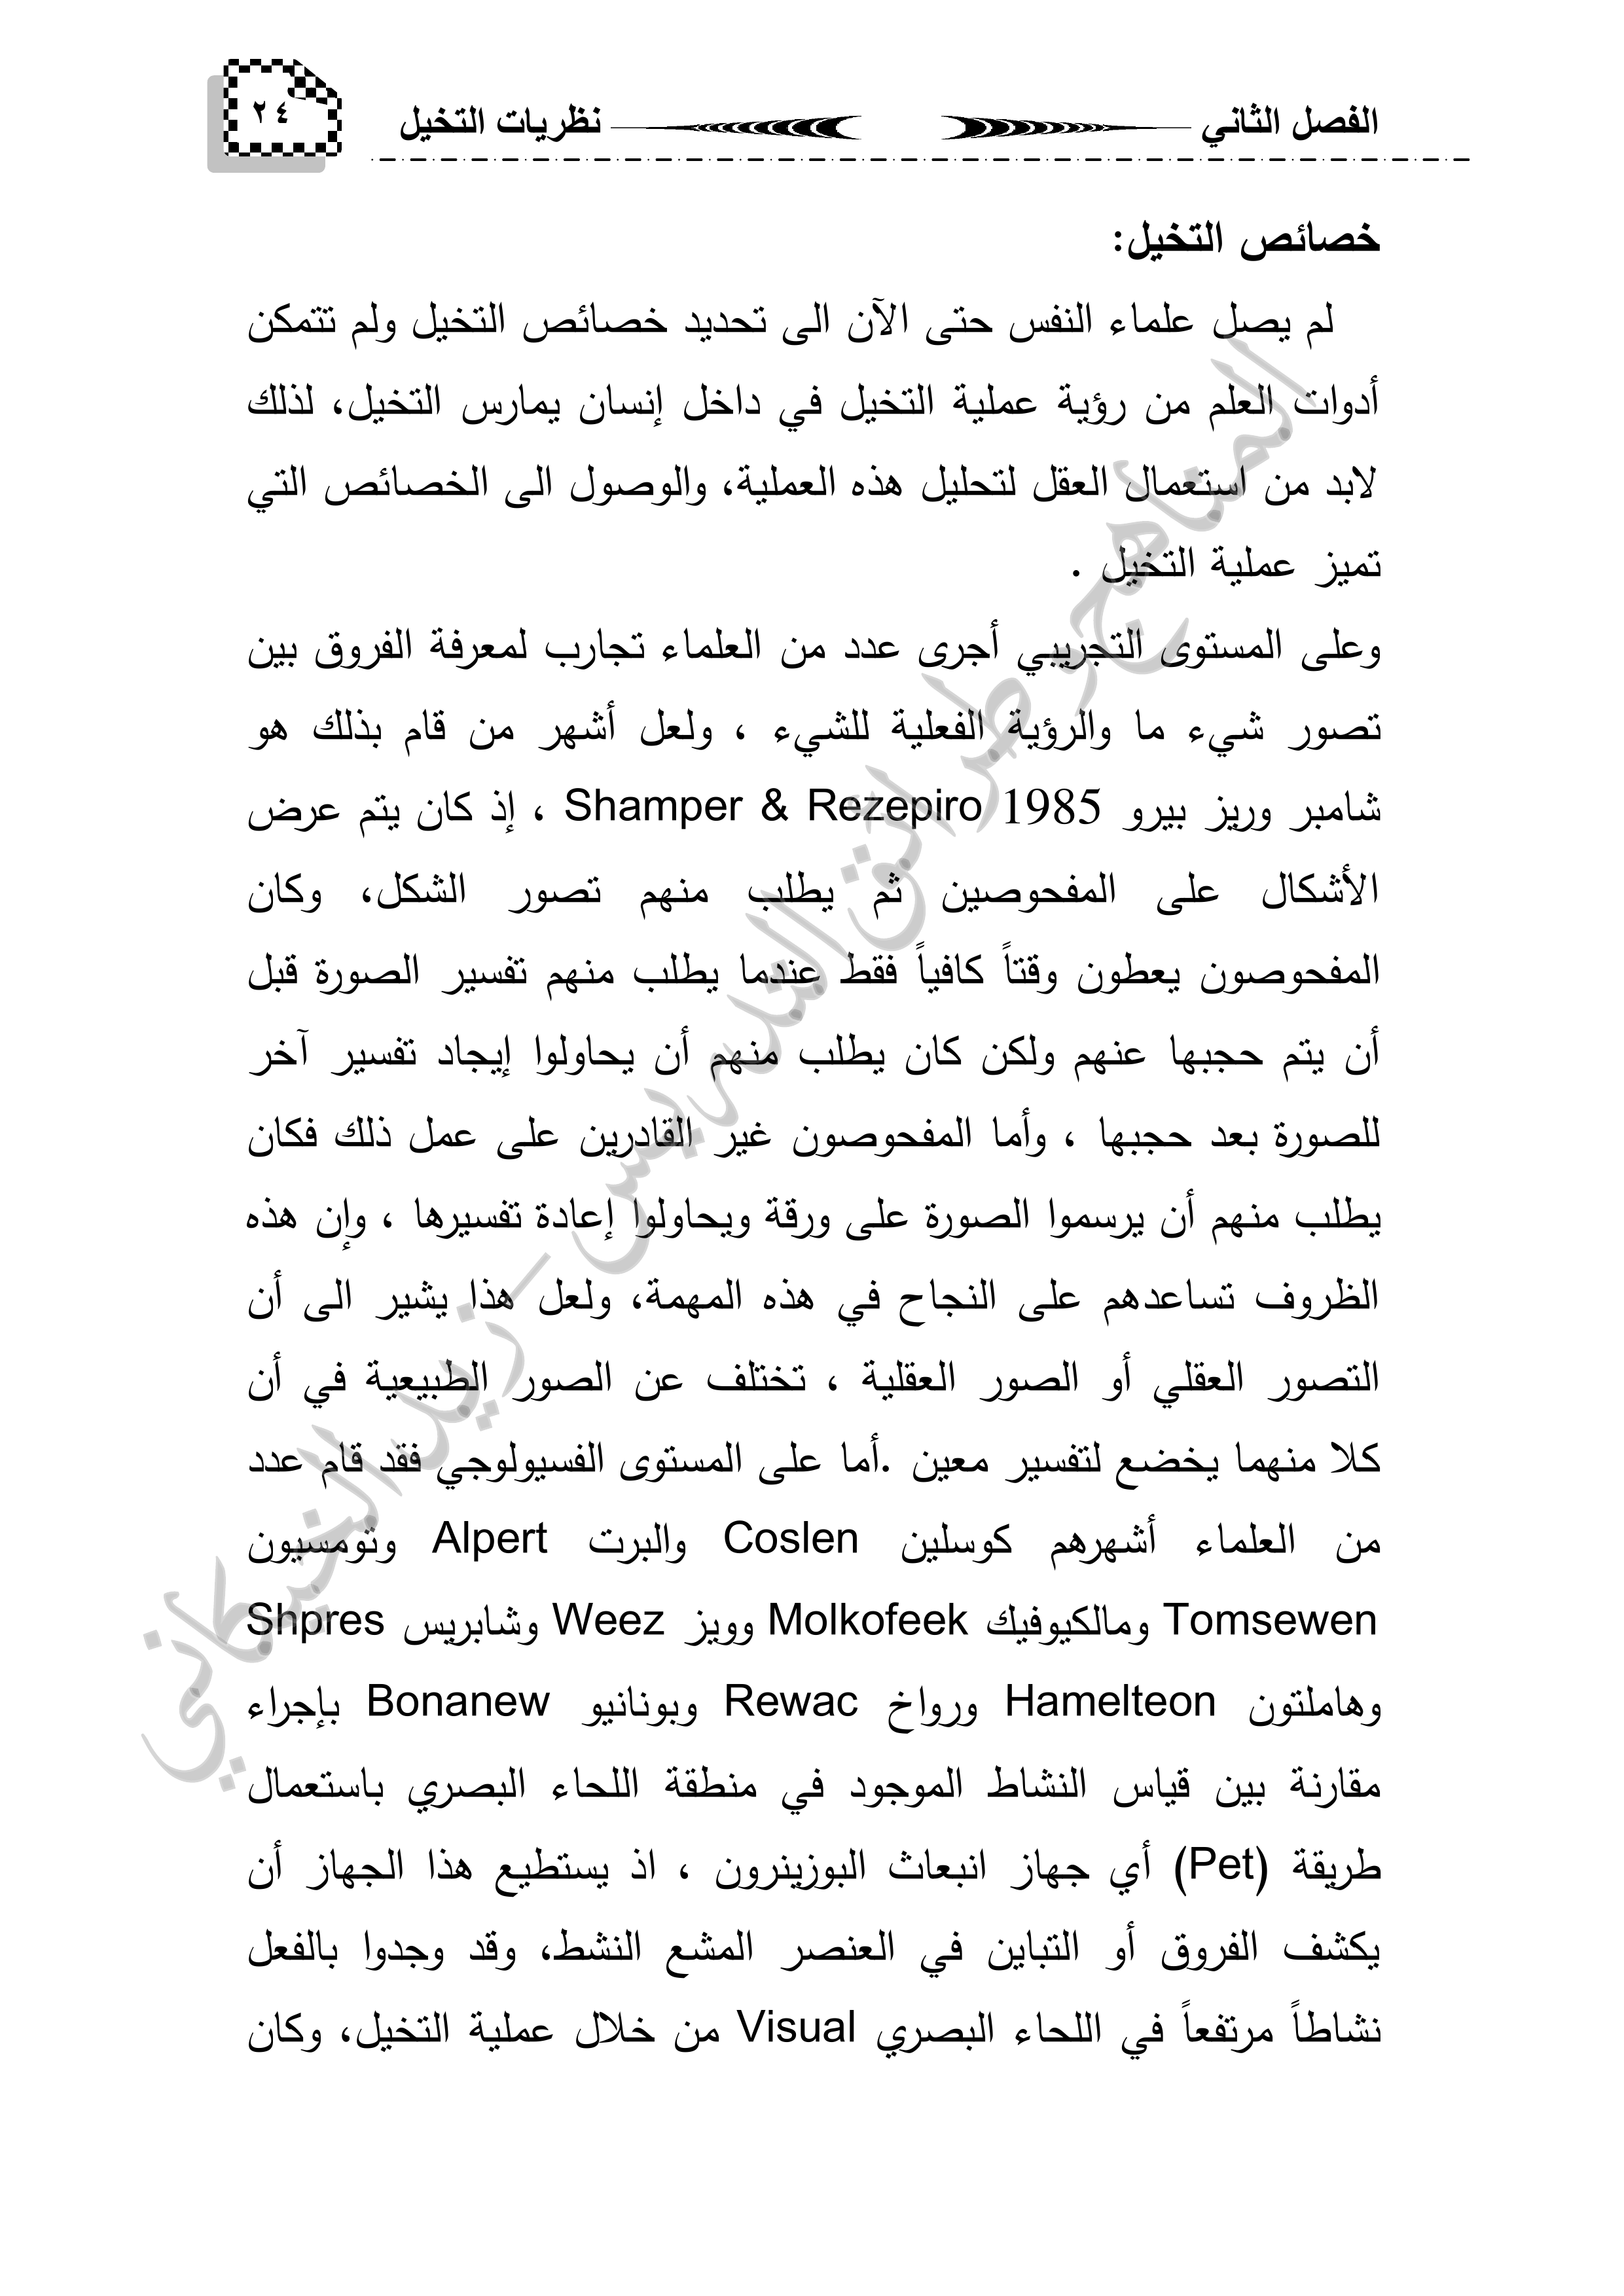 الفصل الثاني نظريات التخيل ٢٤
خصائص التخيل:
لم يصل علماء النفس حتى الآن الى تحديد خصائص التخيل ولم تتمكن
أدوات العلم من رؤية عملية التخيل في داخل إنسان يمارس التخيل، لذلك
لابد من استعمال العقل لتحليل هذه العملية، والوصول الى الخصائص التي
تميز عملية التخيل .
وعلى المستوى التجريبي أجرى عدد من العلماء تجارب لمعرفة الفروق بين
تصور شيء ما والرؤية الفعلية للشيء ، ولعل أشهر من قام بذلك هو
شامبر وريز بيرو Shamper & Rezepiro 1985 ، إذ كان يتم عرض
الأشكال على المفحوصين ثم يطلب منهم تصور الشكل، وكان
المفحوصون يعطون وقتاً كافياً فقط عندما يطلب منهم تفسير الصورة قبل
أن يتم حجبها عنهم ولكن كان يطلب منهم أن يحاولوا إيجاد تفسير آخر
للصورة بعد حجبها ، وأما المفحوصون غير القادرين على عمل ذلك فكان
يطلب منهم أن يرسموا الصورة على ورقة ويحاولوا إعادة تفسيرها ، وإن هذه
الظروف تساعدهم على النجاح في هذه المهمة، ولعل هذا يشير الى أن
التصور العقلي أو الصور العقلية ، تختلف عن الصور الطبيعية في أن
كلا منهما يخضع لتفسير معين .أما على المستوى الفسيولوجي فقد قام عدد
من العلماء أشهرهم كوسلين Coslen والبرت Alpert وتومسيون
Tomsewen ومالكيوفيك Molkofeek وويز Weez وشابريس Shpres
وهاملتون Hamelteon ورواخ Rewac وبونانيو Bonanew بإجراء
مقارنة بين قياس النشاط الموجود في منطقة اللحاء البصري باستعمال
طريقة (Pet) أي جهاز انبعاث البوزينرون ، اذ يستطيع هذا الجهاز أن
يكشف الفروق أو التباين في العنصر المشع النشط، وقد وجدوا بالفعل
نشاطاً مرتفعاً في اللحاء البصري Visual من خلال عملية التخيل، وكان
المناهج وطرائق التدريس - زيد الخيكاني